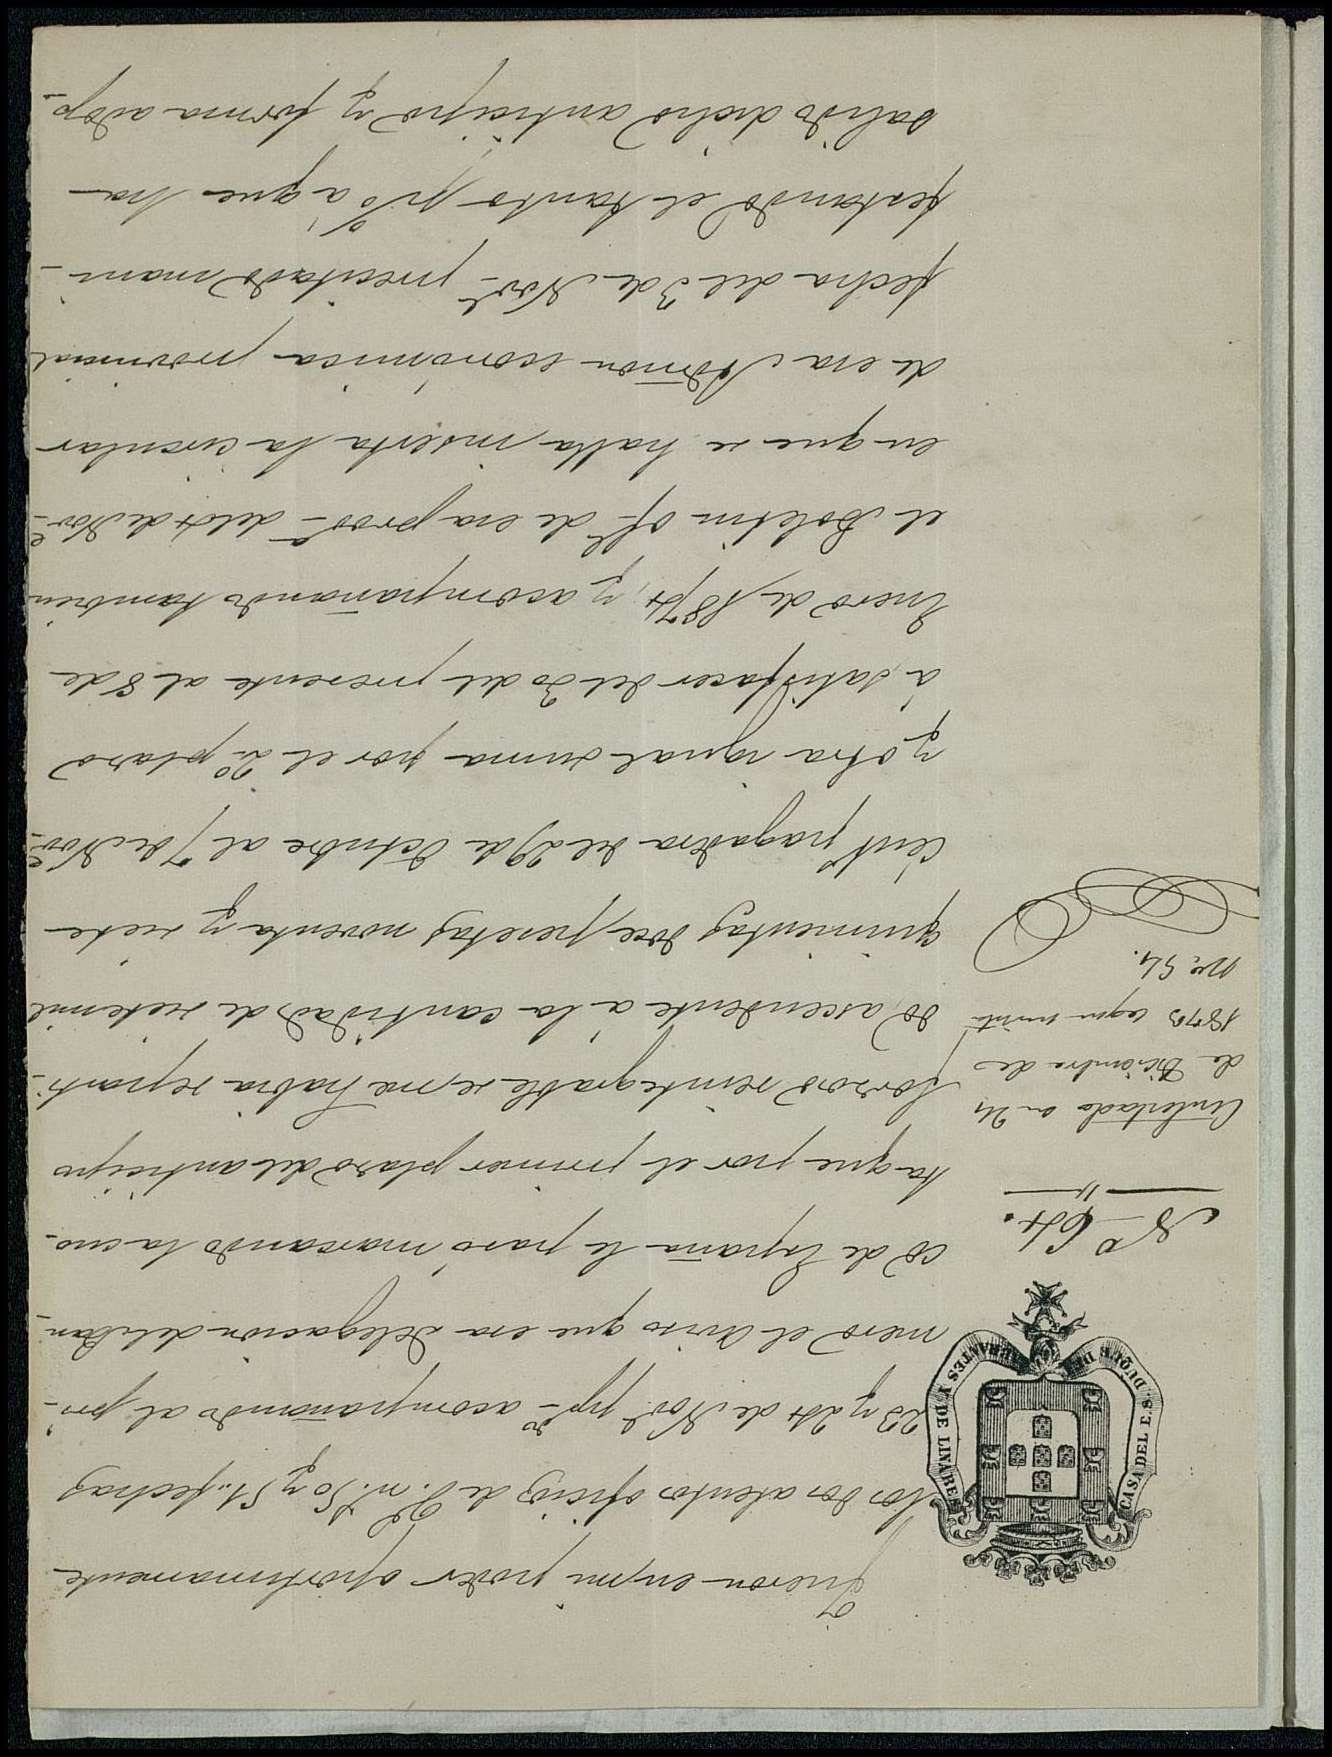 CASA DEL E.S. DUQUE DE ABRANTES Y DE LINARES
Nº 64.
Contestado en 24
de Diciembre de
1873 segun minta
nº 54.
Fueron en mi poder oportunamente
los dos atentos oficios de V. n.s 50 y 51, fechas
23 y 24 de Nov.e pp.do acompañando al pri-
mero el aviso que esa delegacion del Ban-
co de España le pasó marcando la cuo-
ta que por el primer plazo del anticipo
forzoso reintegrable se me habia reparti-
do, ascendente á la cantidad de sietemil
quinientas doce pesetas noventa y siete
cent.s pagadera del 29 de Octubre al 7 de Nov.e
y otra igual suma por el 2º plazo
á satisfacer del 30 del presente al 8 de
Enero de 1874, y acompañando tambien
el Boletin of.l de esa prov.a del 4 de Nov.e
en que se halla inserta la circular
de esa Admon económica provincial
fecha del 3 de Nov.e precitado mani-
festando el tanto p% á que ha
salido dicho anticipo y forma adop-